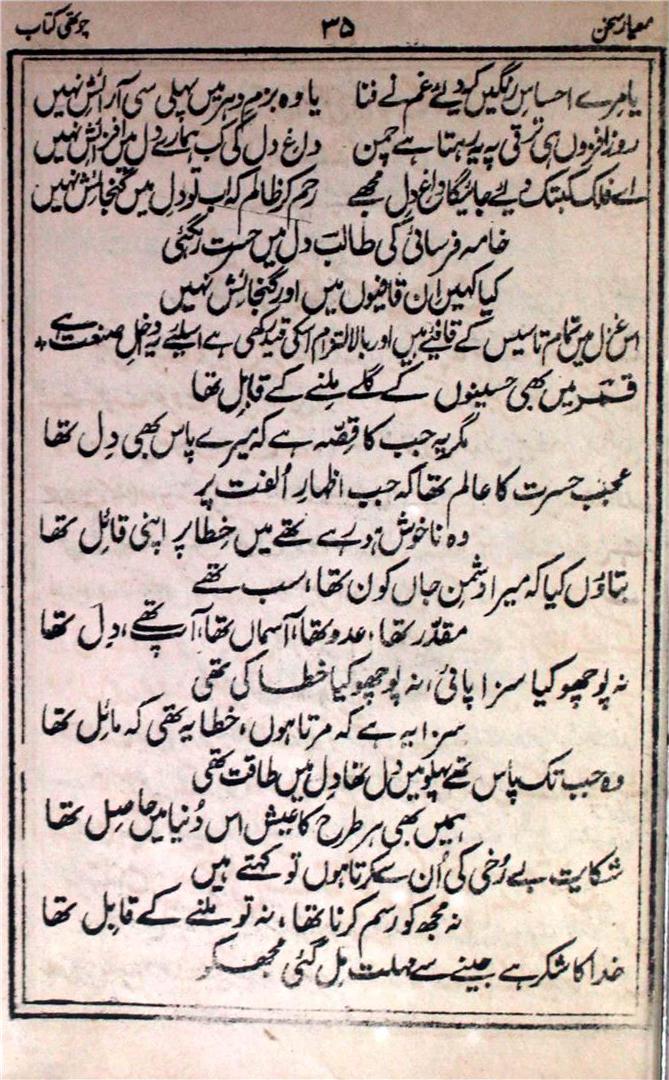 معیار سخن ۳۵ چوتھی کتاب
یا مرے احساس رنگیں کو دیئے غم نے فنا یا وہ بزم دہر میں پہلی سی آرائش نہیں
روز افزوں ہی ترقی پہ یہ رہتا ہے چمن داغ دل کی کب ہمارے دل میں افزائش نہیں
اے فلک کبتک دیئے جائیگا داغ دل مجھے رحم کر ظالم کہ اب تو دل میں گنجائش نہیں
خامہ فرسائی کی طالب دل میں حسرت رہگئی
کیا کہیں ان قافیوں میں اور گنجائش نہیں
اس غزل میں تمام تاسیس کے قافئے ہیں اور بالالتزام اسکی قید رکھی ہے اسلیئے یہ داخل صنعت ہے +
قمر میں بھی حسینوں کے گلے ملنے کے قابل تھا
مگر یہ جب کا قصّہ ہے کہ میرے پاس بھی دل تھا
عجب حسرت کا عالم تھا کہ جب اظہارِ اُلفت پر
وہ ناخوش ہو رہے تھے میں خطا پر اپنی قائل تھا
بتاؤں کیا کہ میرا دشمنِ جاں کون تھا، سب تھے
مقدّر تھا، عدو تھا، آسماں تھا، آپ تھے، دل تھا
نہ پوچھو کیا سزا پائی، نہ پوچھو کیا خطا کی تھی
سزا یہ ہے کہ مرتا ہوں، خطا یہ تھی کہ مائل تھا
وہ جب تک پاس تھے پہلو میں دل تھا دل میں طاقت تھی
ہمیں بھی ہر طرح کا عیش اس دُنیا میں حاصل تھا
شکایت بے رُخی کی اُن سے کرتا ہوں تو کہتے ہیں
نہ مجھ کو رسم کرنا تھا، نہ تو ملنے کے قابل تھا
خدا کا شکر ہے جینے سے مہلت مل گئی مجھکو